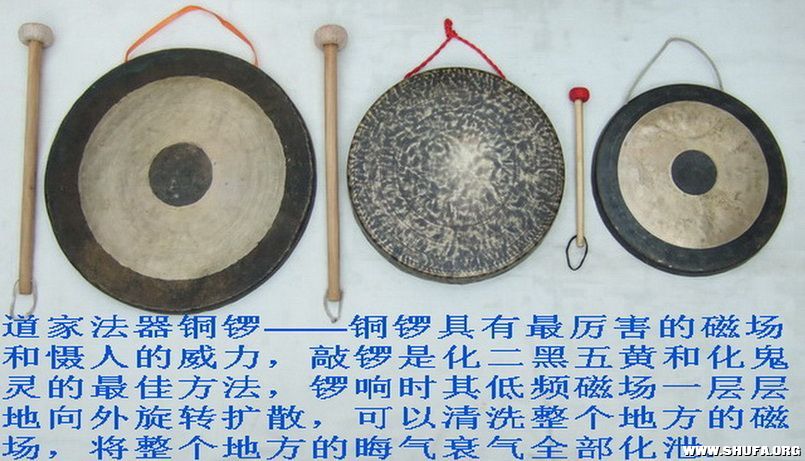 道家法器铜锣——铜锣具有最厉害的磁场
和慑人的威力，敲锣是化二黑五黄和化鬼
灵的最佳方法，锣响时其低频磁场一层层
地向外旋转扩散，可以清洗整个地方的磁
场，将整个地方的晦气衰气全部化泄
WWW.SHUFA.ORG